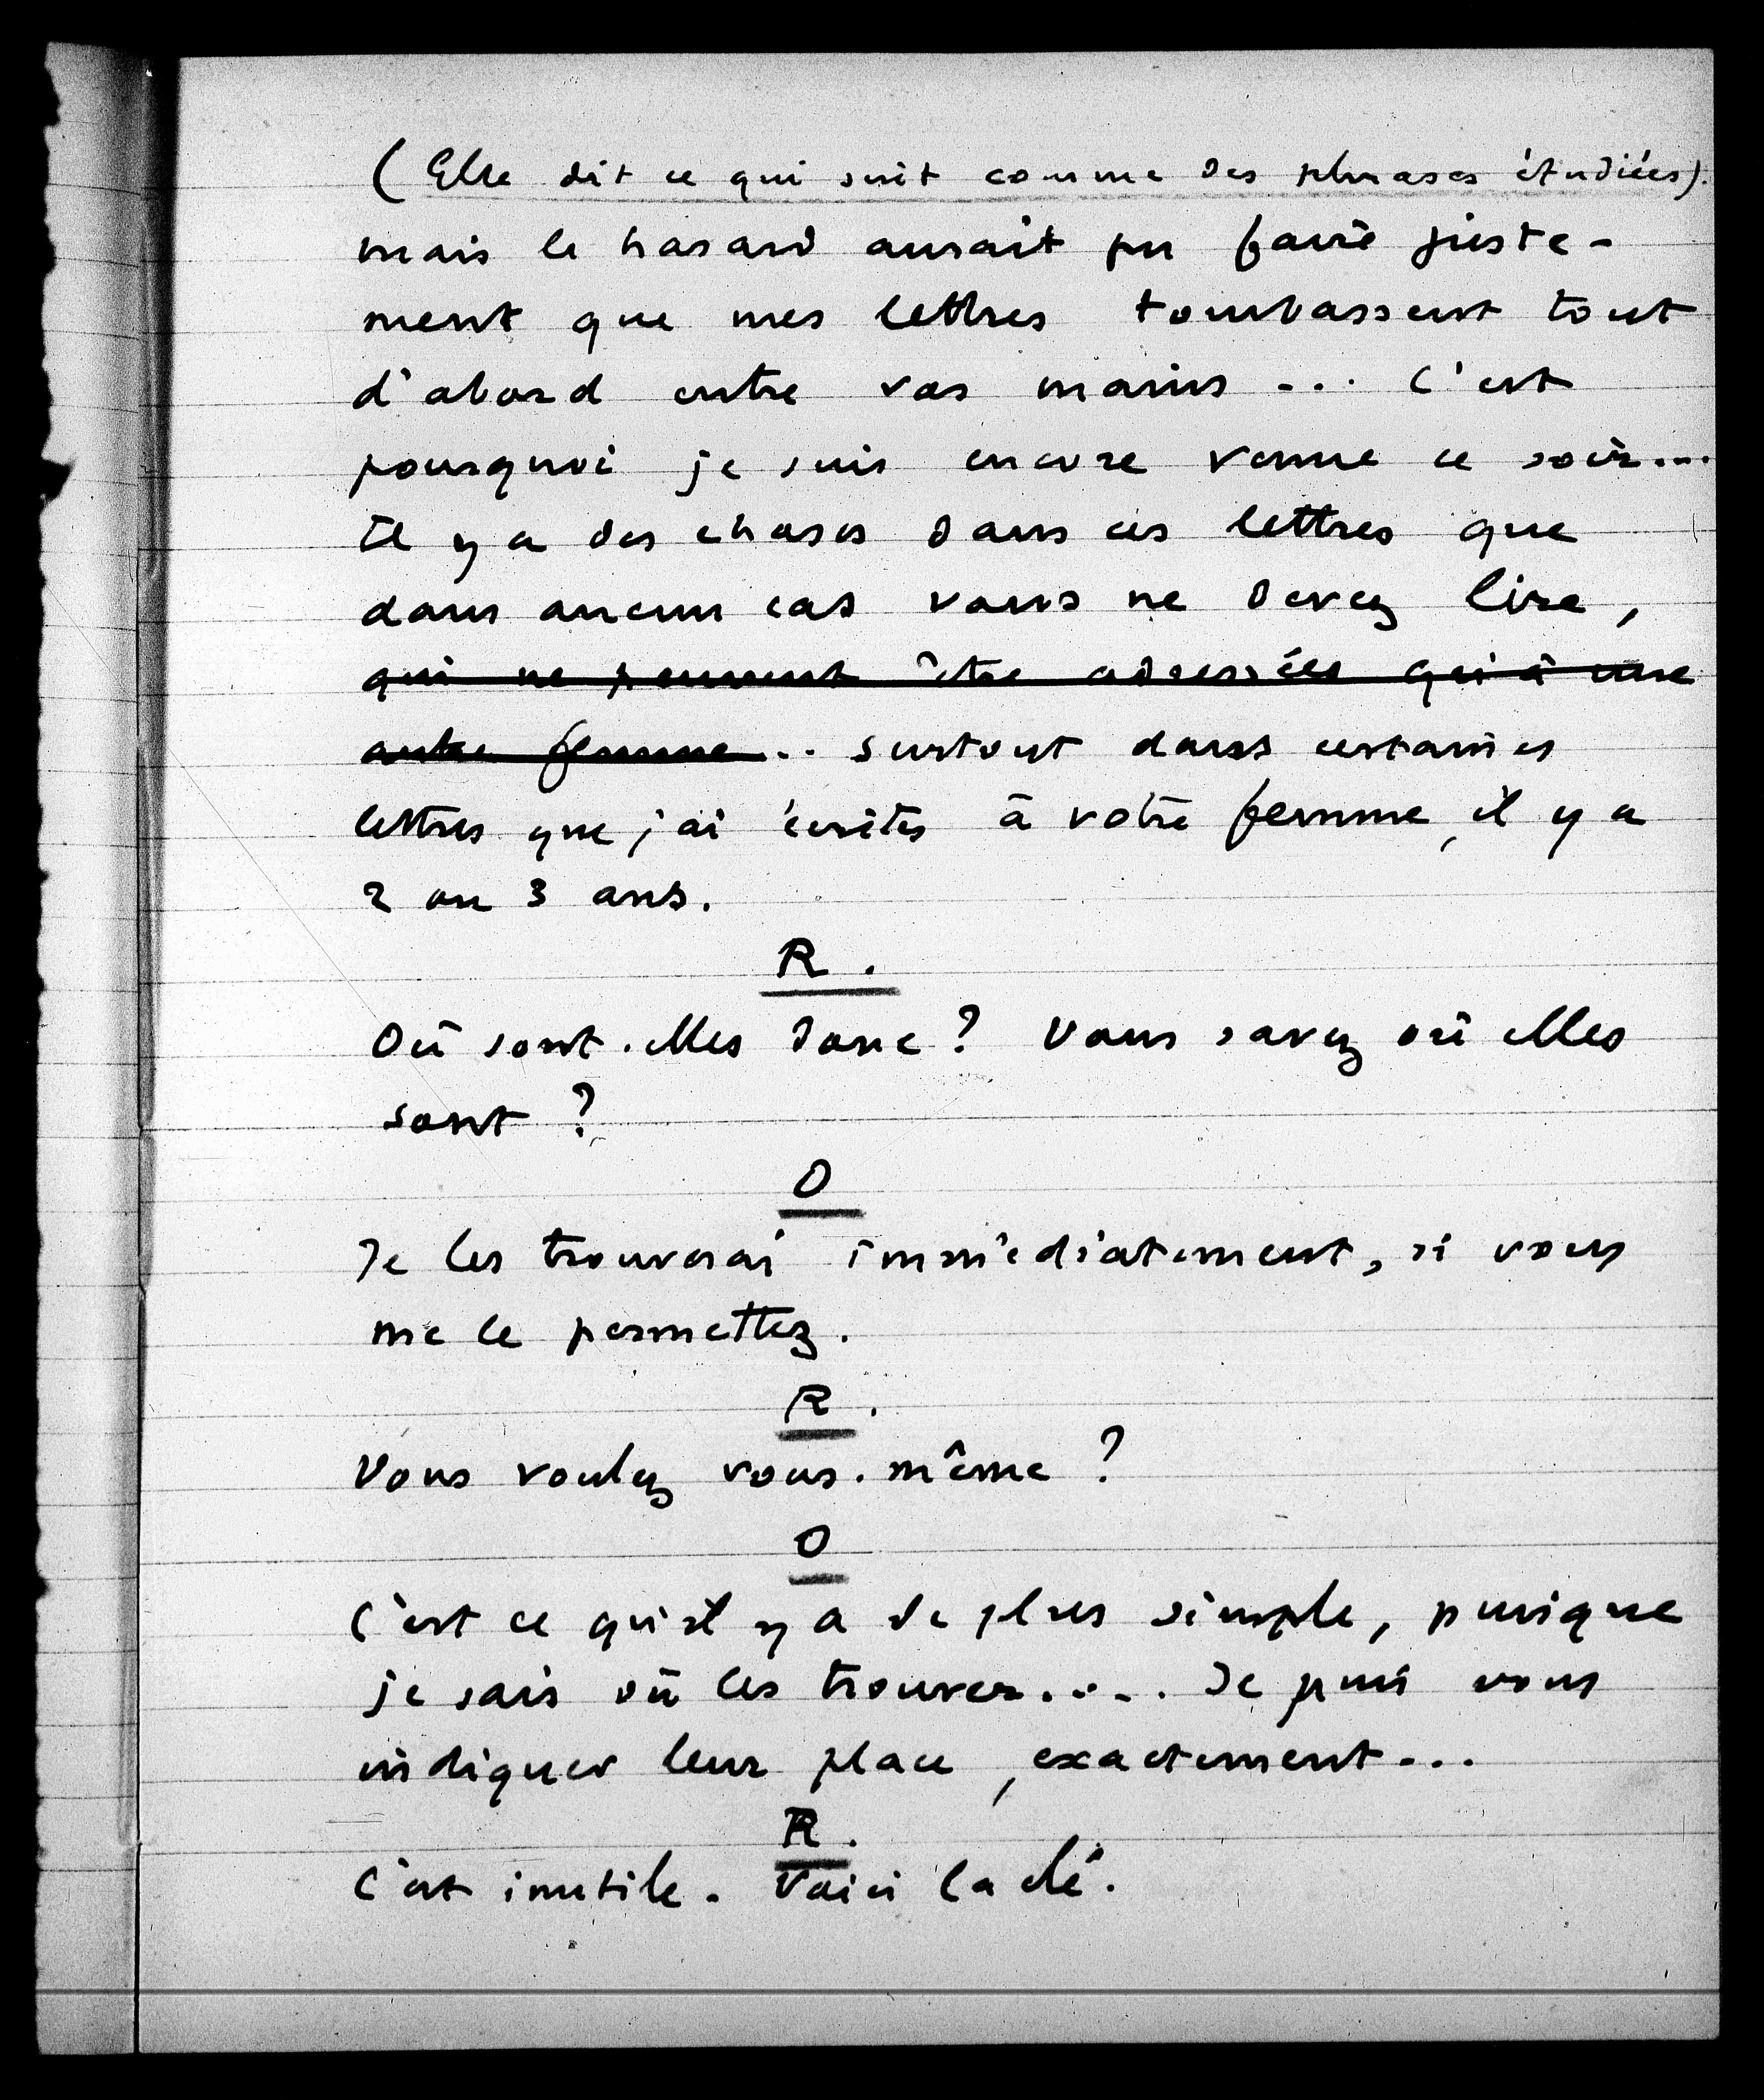 (Elle dit ce qui suit comme des phrases étudiées).
mais le hasard aurait pu faire juste-
ment que mes lettres tombassent tout
d'abord entre vos mains ... C'est
pourquoi je suis encore venue ce soir....
Il y a des choses dans ces lettres que
dans aucun cas vous ne devez lire,
qui ne peuvent être adressées qu'à une
autre femme... surtout dans certaines
lettres que j'ai écrites à votre femme, il y a
2 ou 3 ans.
R.
Où sont-elles donc ? Vous savez où elles
sont ?
O
Je les trouverai immédiatement, si vous
me le permettez.
R.
Vous voulez vous-même ?
O
C'est ce qu'il y a de plus simple, puisque
je sais où les trouver..... Je puis vous
indiquer leur place, exactement...
R.
C'est inutile. Voici la clé.